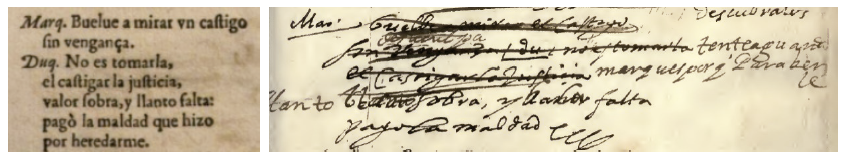 Marq. Buelue a mirar vn castigo
sin vengança.
Duq. No es tomarla,
el castigar la justicia,
valor sobra, y llanto falta:
pagò la maldad que hizo
por heredarme.
descubrales
Mar. buelbe a mirar el Castigo
sin no es tomarla
el Castigar la Justicia marques porq Para ber
le
llanto sobra, y llaber falta
pago la maldad